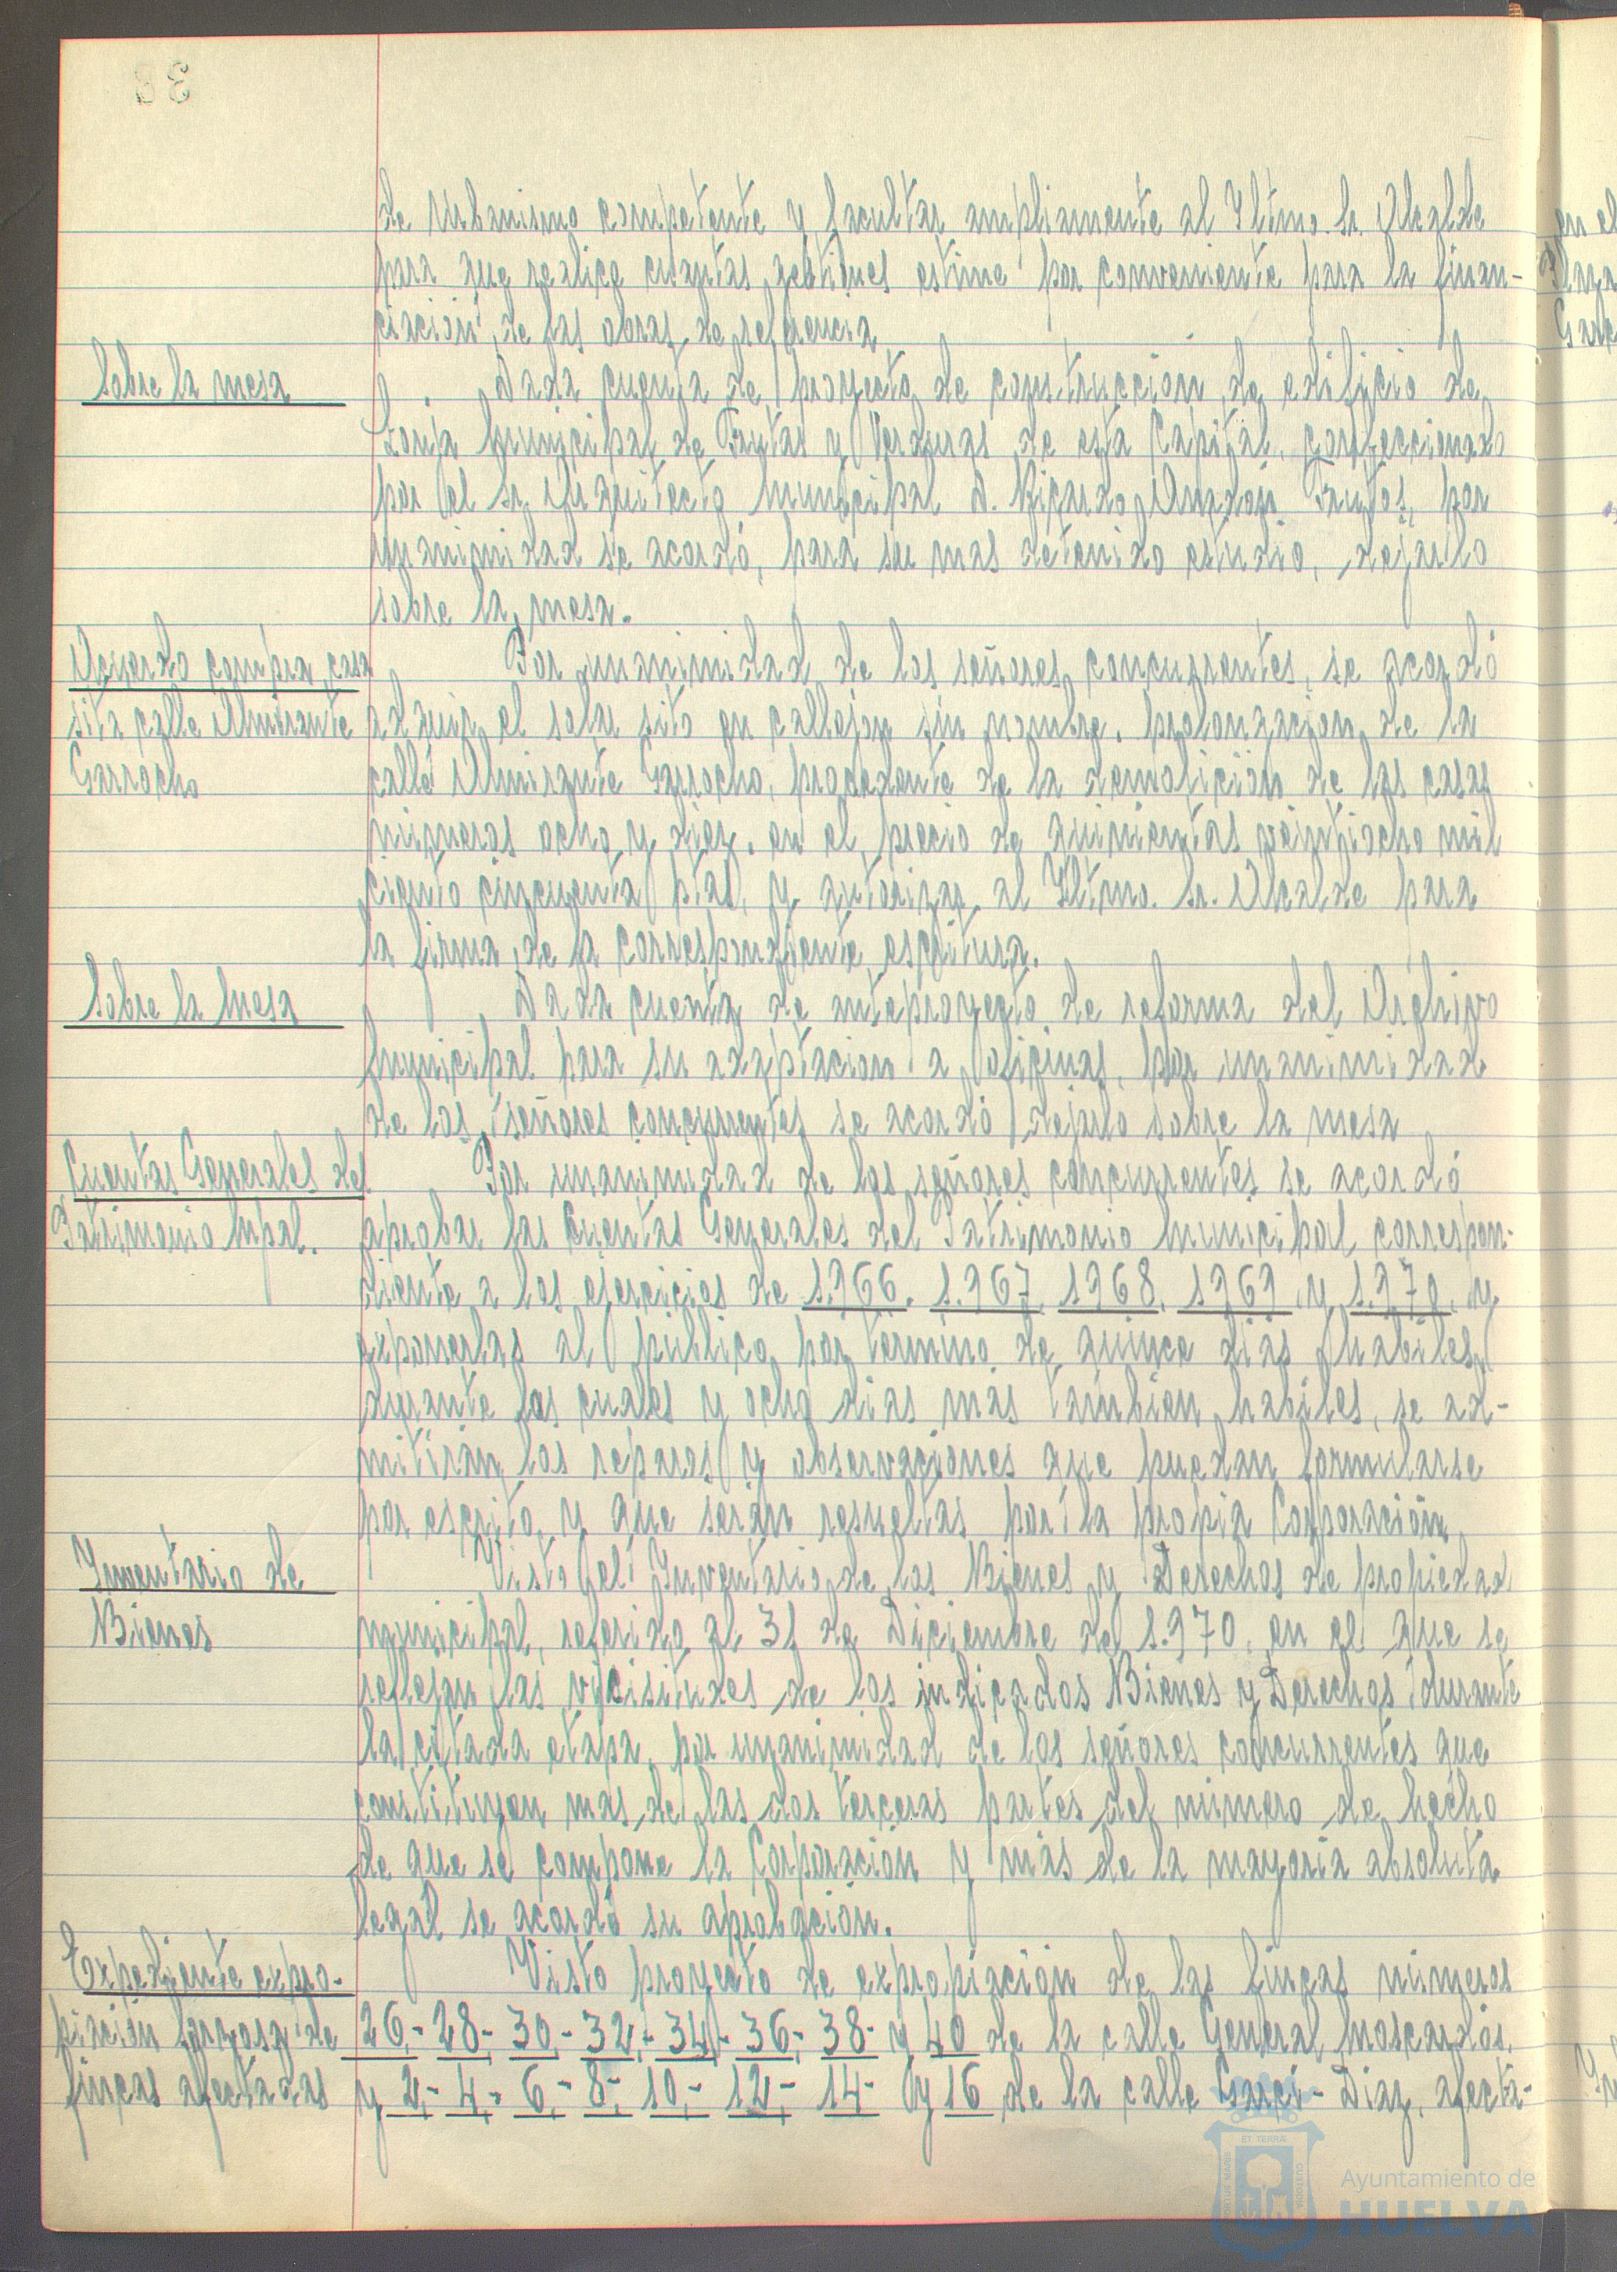 de Urbanismo competente y facultar ampliamente al Iltmo. Sr. Alcalde
para que realice cuantas gestiones estime por conveniente para la finan-
ciación de las obras de referencia
Sobre la mesa
Dada cuenta de proyecto de construcción de edificio de
Lonja Municipal de Frutas y Verduras de esta Capital, confeccionado
por el Sr. Arquitecto Municipal D. Ricardo Anadon Frutos, por
unanimidad se acordó, para su mas detenido estudio, dejarlo
sobre la mesa.
Acuerdo compra casa
sita calle Almirante
Garrocho
Por unanimidad de los señores concurrentes, se acordó
adquirir el solar sito en callejon sin nombre, prolongacion de la
calle Almirante Garrocho, procedente de la demolición de las casas
números ocho y diez, en el precio de quinientas veintiocho mil
ciento cincuenta ptas, y autorizar al Iltmo. Sr. Alcalde para
la firma de la correspondiente escritura.
Sobre la Mesa
Dada cuenta de anteproyecto de reforma del Archivo
Municipal para su adaptacion a oficinas, por unanimidad
de los señores concurrentes se acordó dejarlo sobre la mesa
Cuentas Generales del
Patrimonio Mpal.
Por unanimidad de los señores concurrentes se acordó
aprobar las Cuentas Generales del Patrimonio Municipal correspon-
diente a los ejercicios de 1.966, 1.967, 1968, 1969 y 1.970, y
exponerlas al público por término de quince días hábiles,
durante los cuales y ocho días más también hábiles, se ad-
mitirán los reparos y observaciones que puedan formularse
por escrito, y que serán resueltas por la propia Corporación
Inventario de
Bienes
Visto el Inventario de los Bienes y Derechos de propiedad
municipal, referido al 31 de Diciembre de 1.970, en el que se
reflejan las vicisitudes de los indicados Bienes y Derechos durante
la citada etapa, por unanimidad de los señores concurrentes que
constituyen más de las dos terceras partes del número de hecho
de que se compone la Corporación y más de la mayoria absoluta
legal se acordó su aprobación.
Expediente expro-
piación forzosa de
fincas afectadas
Visto proyecto de expropiación de las fincas números
26,- 28- 30- 32,- 34- 36- 38- y 40 de la calle General Moscardós,
y 2,- 4,- 6,- 8- 10,- 12,- 14- y 16 de la calle Garci-Diaz, afecta-
Ayuntamiento de
HUELVA